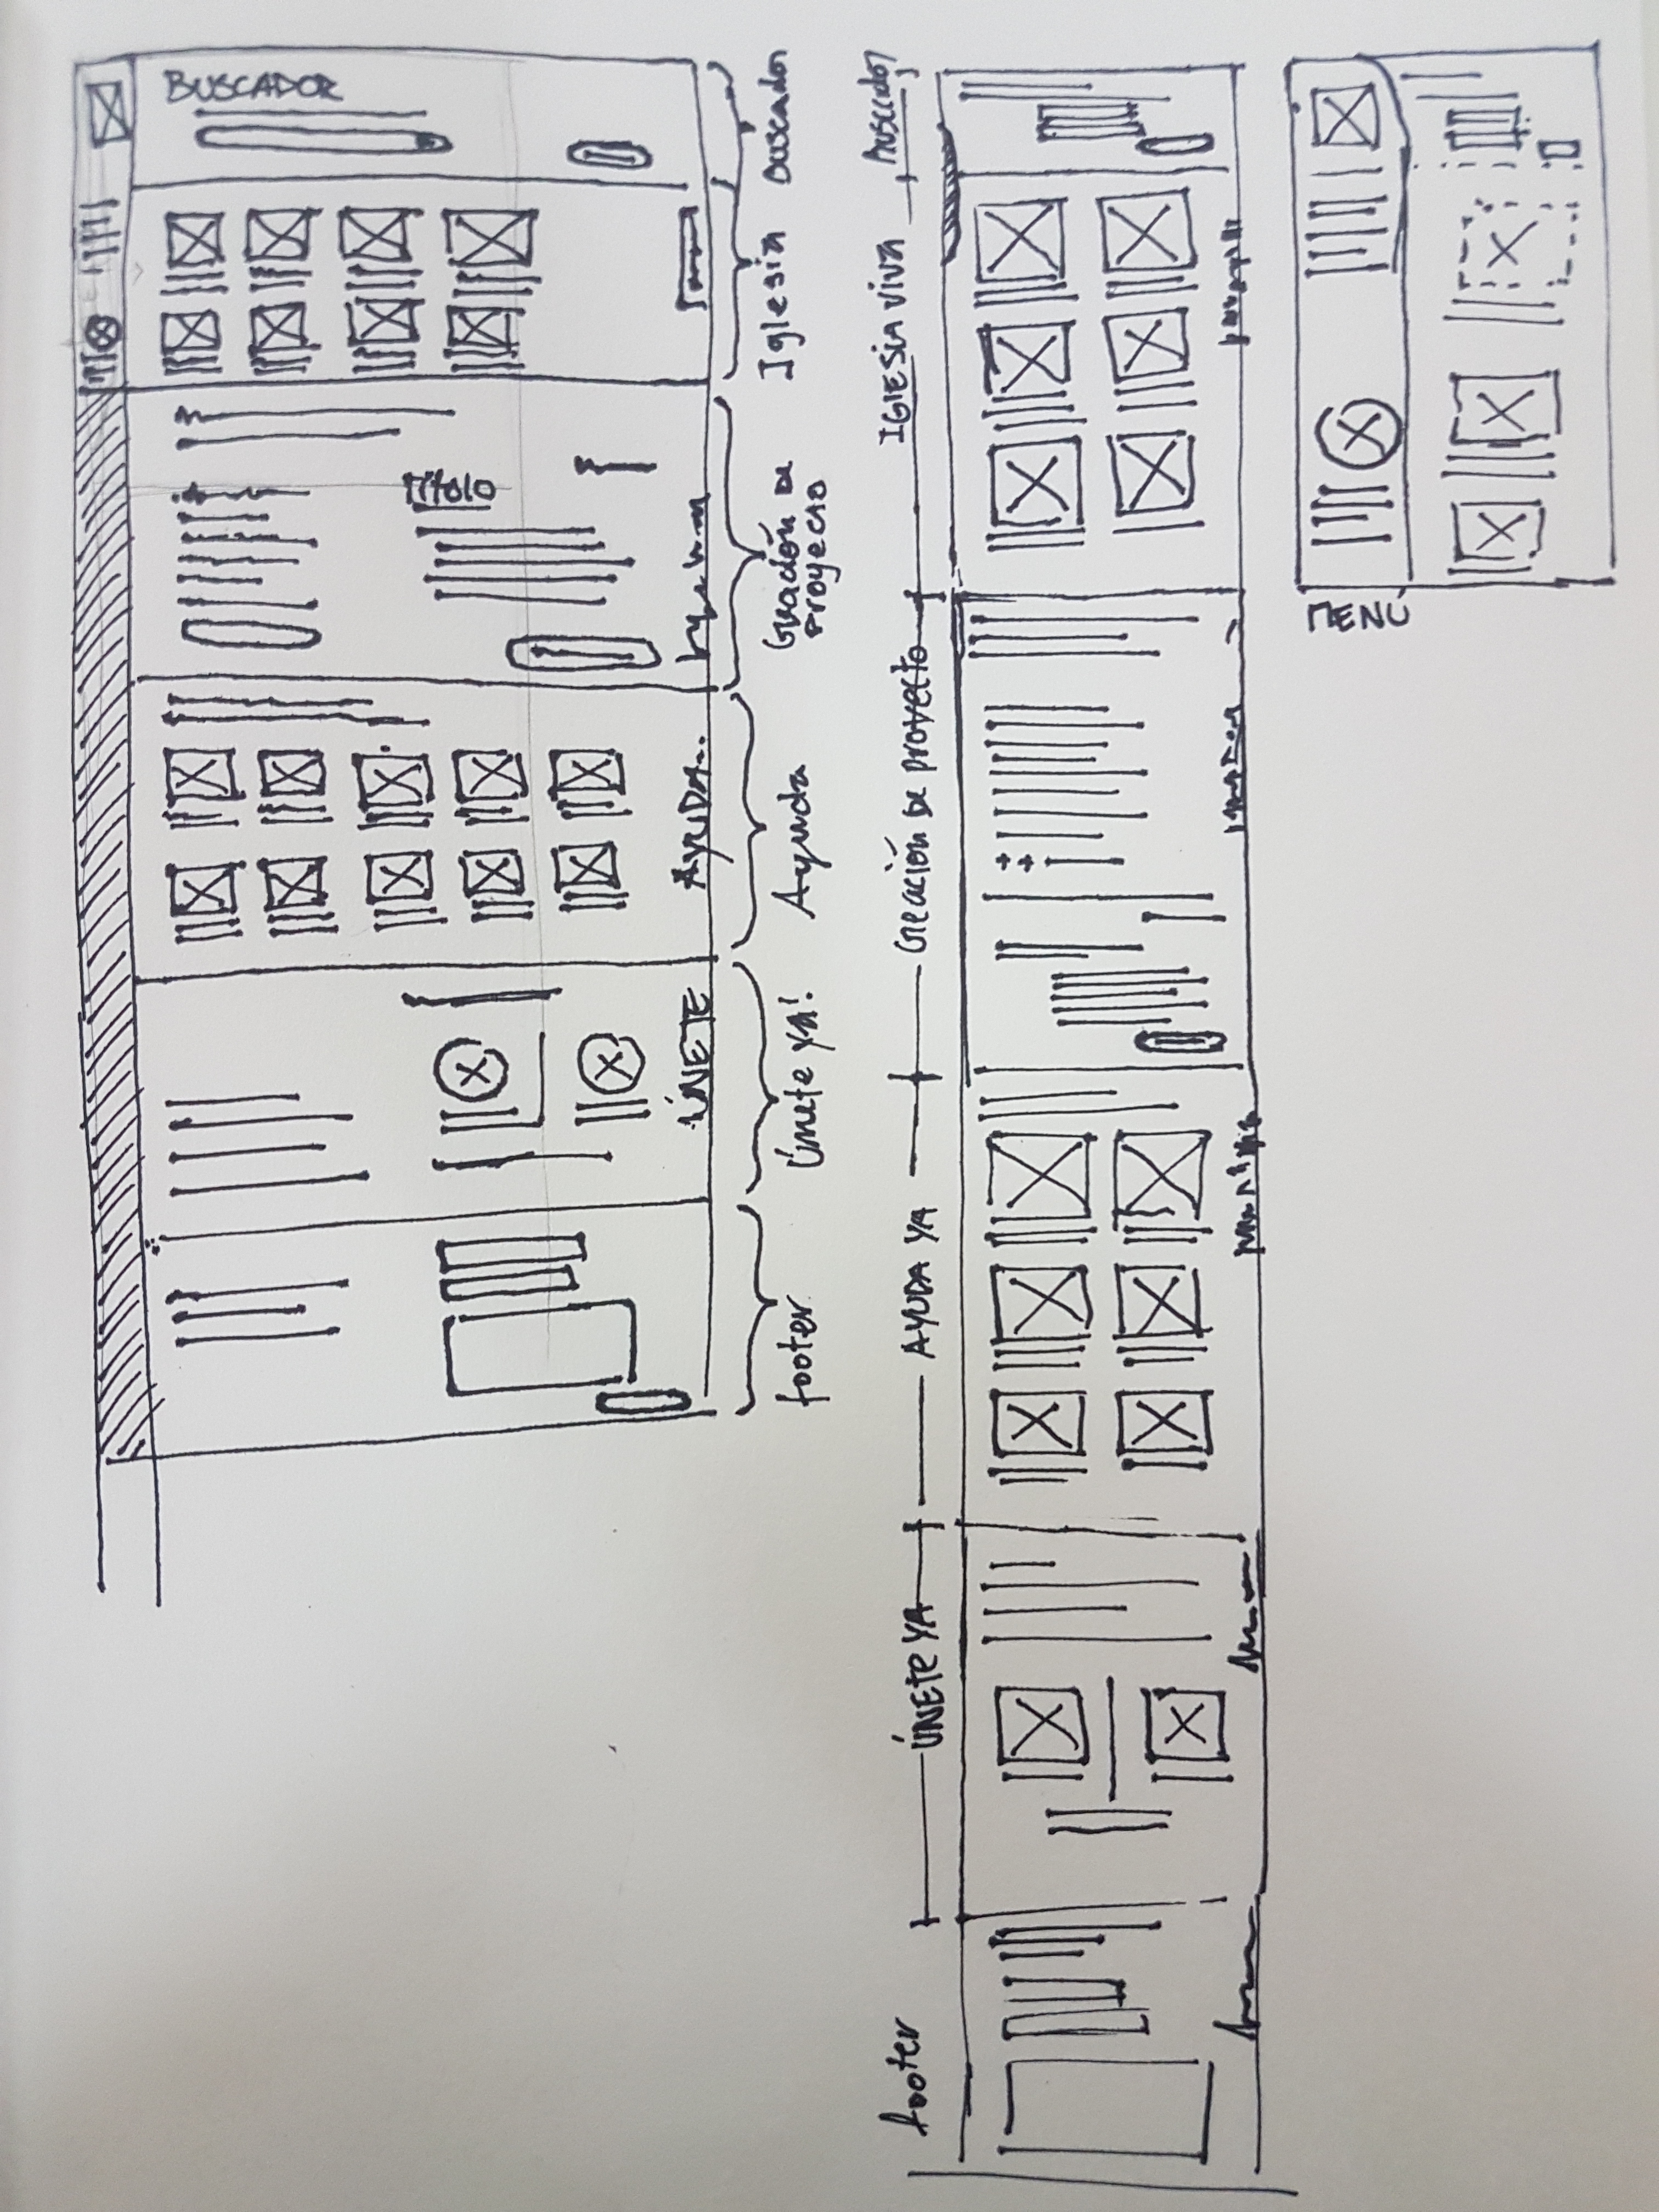 BUSCADOR
TÍTULO
AYUDA..
ÚNETE
Buscador
Iglesia
Creación de
proyecto
Ayuda
Únete ya!
footer
Buscador
IGLESIA VIVA
Creación de proyecto
AYUDA YA
ÚNETE YA
footer
MENÚ